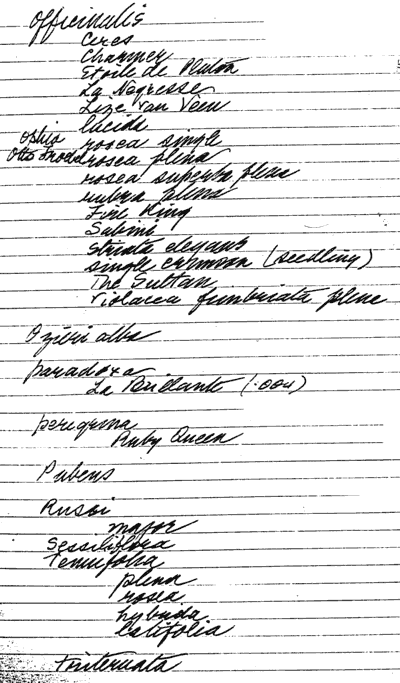 Officinalis
Ceres
Charmer
Etoile de Pluton
La Negresse
Lize van Veen
lucida
Ophia rosea single
Otto Froebel rosea plena
rosea superba plena
rubra plena
Fire King
Sabini
Striata elegans
single crimson (seedling)
The Sultan
Violacea fimbriata plene
Ozieri alba
paradoxa
La Brillante
peregrina
Ruby Queen
Pubens
Russi
major
Sessiliflora
Tenuifolia
plena
rosea
hybrida
latifolia
triternata